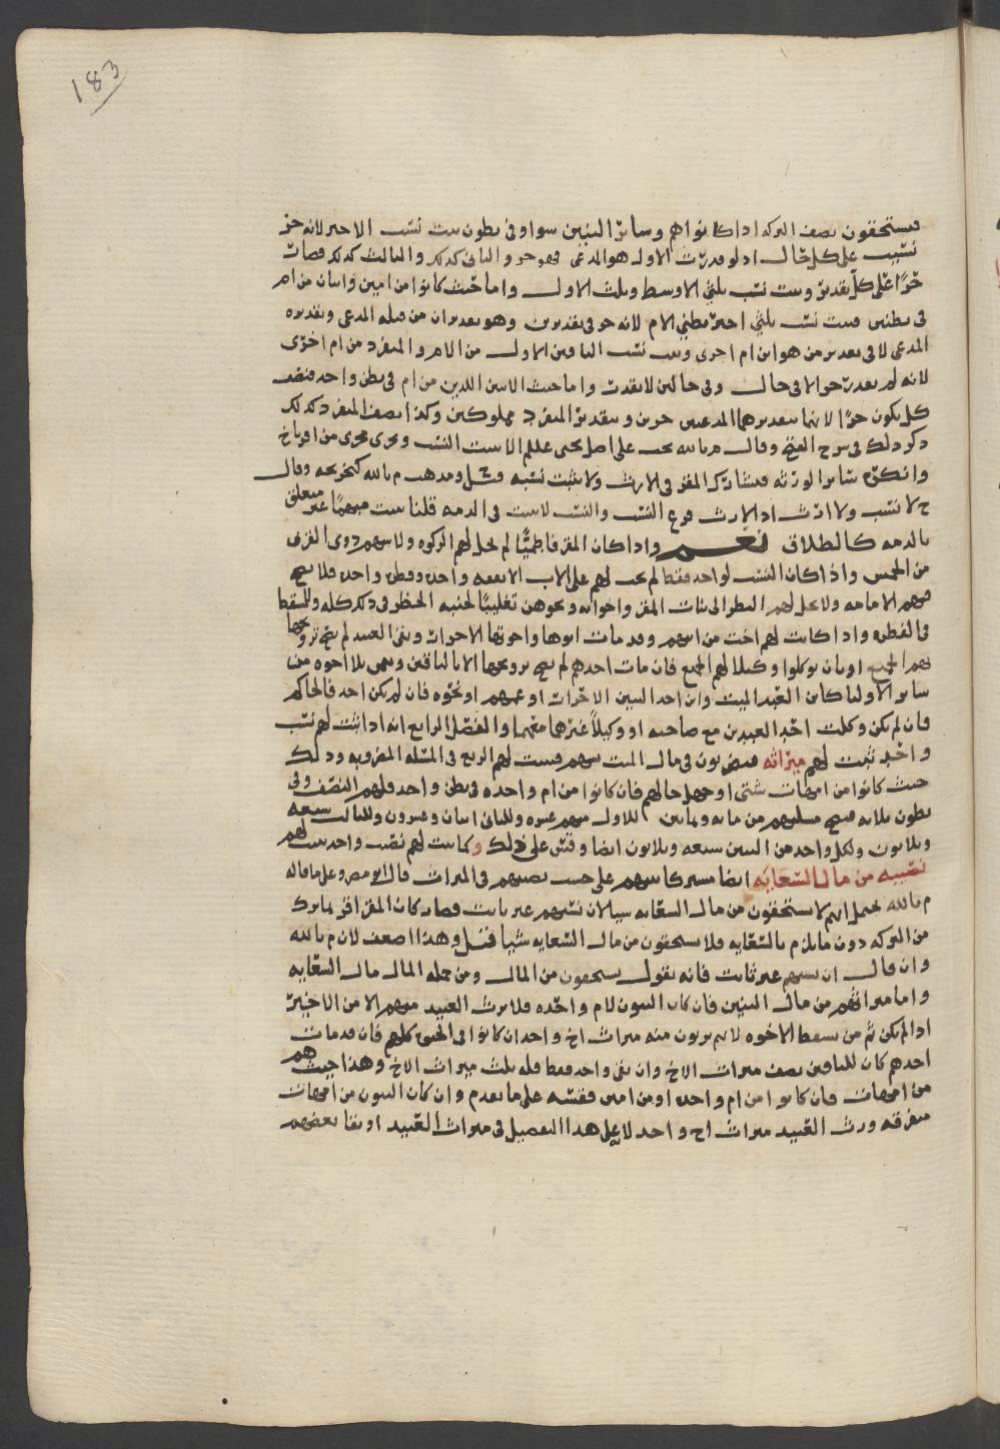 183
فيستحقون نصف التركه اذا كانوا هم وسائر البنين سوا وفي بطون يثبت نسب الاخير لانه حر
نسيب على كل حال اذ لو قدرت الاول هو المدعى فهو حر والثاني كذلك والثالث كذلك فصارت
حرًا على كل تقدير ويثبت نسب ثلثي الاوسط وثلث الاول واما حيث كانوا من امين واثنان من ام
في بطنين فيثبت نسب ثلثي اخير بطني الام لانه حر في تقديرين وهو تقديران من قبله المدعى وتقديره
المدعى لا في تقدير من هو ابن ام اخرى ويثبت نسب الباقين الاول من الام والمنفرد من ام اخرى
لانه لم يقدر حر الا في حال وفي حالين لا يقدر واما حيث الاثنين اللذين من ام في بطن واحد فنصف
كل يكون حرًا لانهما بتقديرهما المدعيين حرين وبتقدير المنفرد مملوكين وكذا نصف المنفرد كذلك
ذكر ذلك في شرح الفتح وقال م بالله يجب على اصل يحيى عللم الا يثبت النسب ويجرى مجرى من اقر باخ
وانكره سائر الورثه فيشارك المقر في الارث ولا يثبت نسبه ومذهب م بالله كتخريجه وقال
ح لا نسب ولا ارث اذ الارث فرع النسب والنسب لا يثبت في الذمه قلنا يثبت مبهمًا غير متعلق
بالذمه كالطلاق نعم واذا كان المقر فاطميًّا لم تحل لهم الزكوه ولا سهم ذوى القربى
من الخمس واذا كان النسب لواحد فقط لم يجب لهم على الاب الا نفقه واحد وفطره واحد فلا تصح
منهم الامامه ولا يحل لهم النظر الى بنات المقر واخواته ونحوهن تغليبًا لجنبه الحظر في ذلك كله وللمسقط
في الفطره واذا كانت لهم اخت من ابيهم وقد مات ابوها واخوتها الاحرار وبقى العبيد لم يصح تزويجها
بهم الجميع او بان يوكلوا وكيلا لهم الجميع فان مات احدهم لم يصح تزويجها الا بالباقين وبمن بلا اخوه من
سائر الاوليا كابن العبد الميت وابن احد البنين الاحرار او عمهم او نحوه فان لم يكن احد فالحاكم
فان لم يكن وكلت احد العبدين مع صاحبه او وكيلاً غيرها معهما والفصل الرابع انه اذا ثبت لهم نسب
واحد ثبت لهم ميراثه فيضربون في مال الميت بسهم فيثبت لهم الربع في المسئله المفروضه وذلك
حيث كانوا من امهات شتى او جهل حالهم فان كانوا من ام واحده في بطن واحد فلهم النصف وفي
بطون ثلاثه فتصح مسئلتهم من مايه وثمانين للاول منهم عشره وللثاني اثنان وعشرون وللثالث سبعه
وثلاثون ولكل واحد من البنين سبعه وثلاثون ايضا وقس على ذلك وكما يثبت لهم نصيب واحد يثبت لهم
نصيبه من مال السعايه ايضا مشتركا بينهم على حسب نصيبهم في الميراث قال ابو مضر وعلى ما قاله
م بالله يحتمل انهم لا يستحقون من مال السعايه شيا لان نسبهم غير ثابت فصار كان المقر اقر بما ترك
من التركه دون ما يلزم بالسعايه فلا يستحقون من مال السعايه شيا وهذا اضعف لان م بالله
وان قال ان نسبهم غير ثابت فانه يقول يستحقون من المال ومن جمله المال مال السعايه
واما ميراثهم من مال البنين فان كان البنون لام واحده فلا يرث العبيد منهم الا من الاخير
اذا لم يكن ثم من يسقط الاخوه لانهم يرثون منه ميراث اخ واحد ان كانوا في الحيوه كلهم فان قد مات
احدهم كان للباقين نصف ميراث الاخ وان بقى واحد فقط فله ثلث ميراث الاخ وهذا حيث هم
من امهات فان كانوا من ام واحده او من امين فقسه على ما تقدم وان كان البنون من امهات
متفرقه ورث العبيد ميراث اخ واحد لا على هذا التفصيل في ميراث العبيد او بقا بعضهم